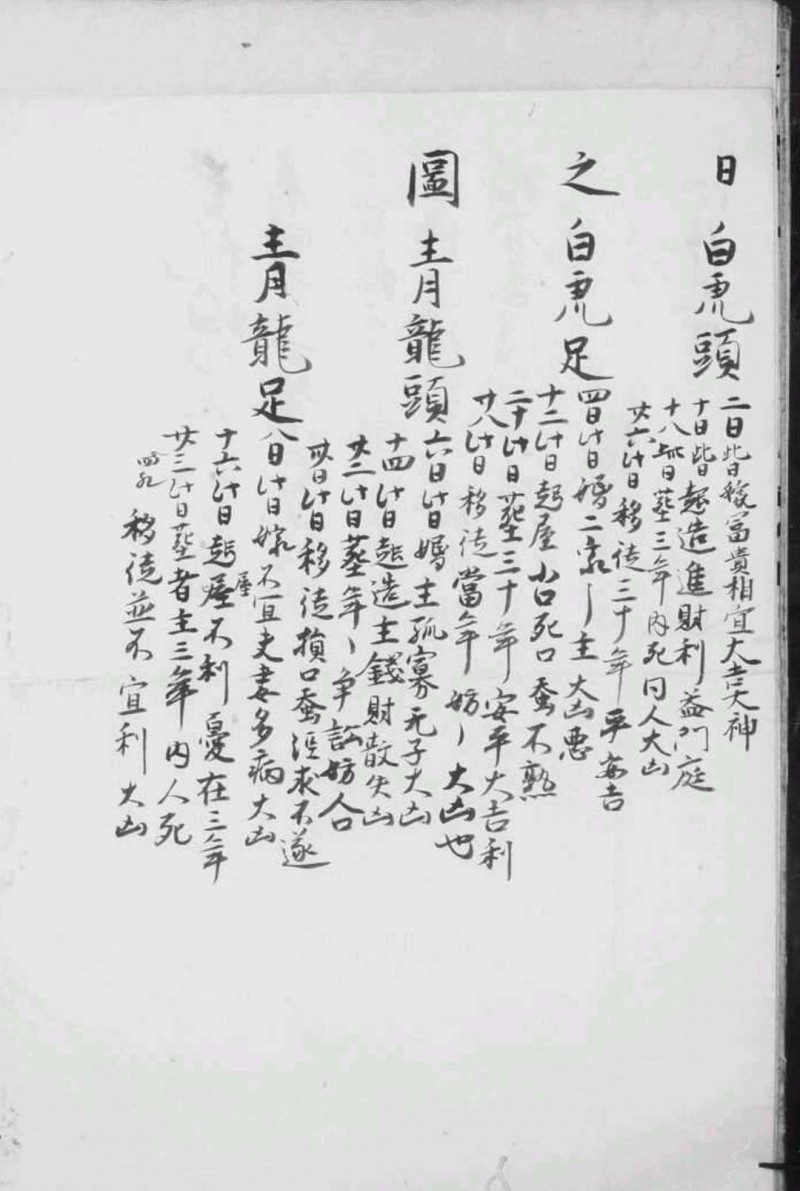 日 白虎頭
二日此日嫁富貴相宜大吉大神
十日此日起造進財利益門庭
十八此日葬三年内死同人大凶
廿六此日移徒三十年平安吉
之 白虎足
四日此日婚二家〻主大凶悪
十二此日起屋小口死口蚕不熟
二十此日葬三十年安平大吉利
廿八此日移徒當年妨〻大凶也
圖 青龍頭
六日此日婚主孤寡无子大凶
十四此日起造主錢財散失凶
廿二此日葬年〻争訟妨人口
卅日此日移徒損口蚕経求不遂
青龍足
八日此日嫁不宜夫妻多病大凶
十六此日起屋不利憂在三年
廿三此日葬者主三年内人死
移徒並不宜利大凶